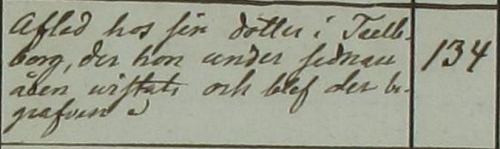 Afled hos sin dotter i Traelle-
borg, der hon under sednare
åren wistats och blef der be-
grafven
134